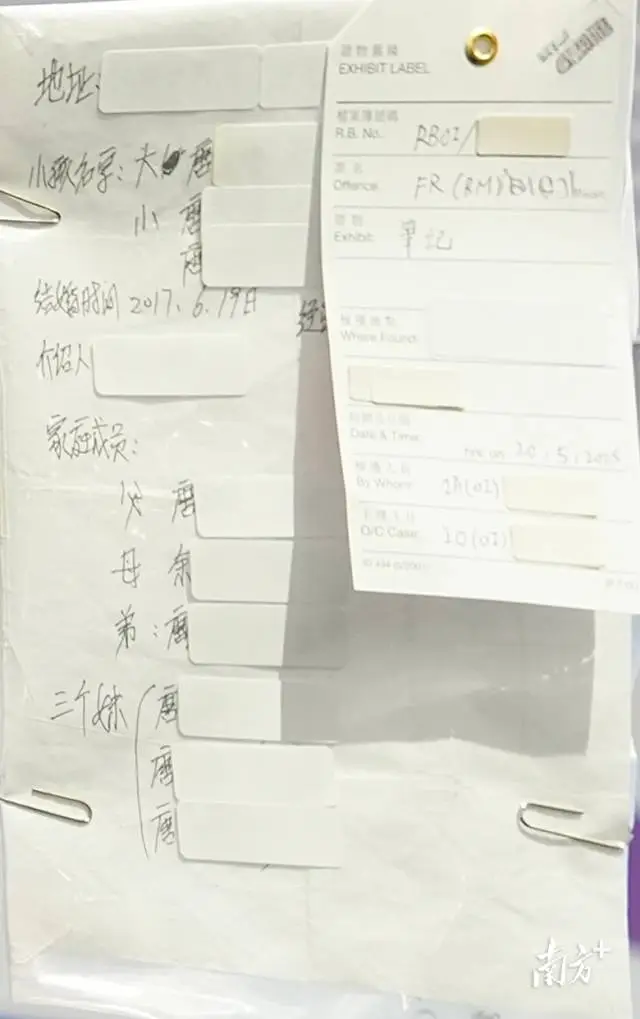 地址:
小孩名字: 大 唐
小 唐
唐
结婚时间 2017.6.19日
介绍人
家庭成员:
父 唐
母 余
弟: 唐
三个妹 唐
唐
唐
證物標籤
EXHIBIT LABEL
檔案簿號碼
R.B. No. RBOI/
案名
Offence FR (BM)
證物
Exhibit: 筆記
檢獲地點
Where Found:
Date & Time:
20.5.
檢獲人員
By Whom: IA(OI)
主理人員
O/C Case: IO(OI)
南方+